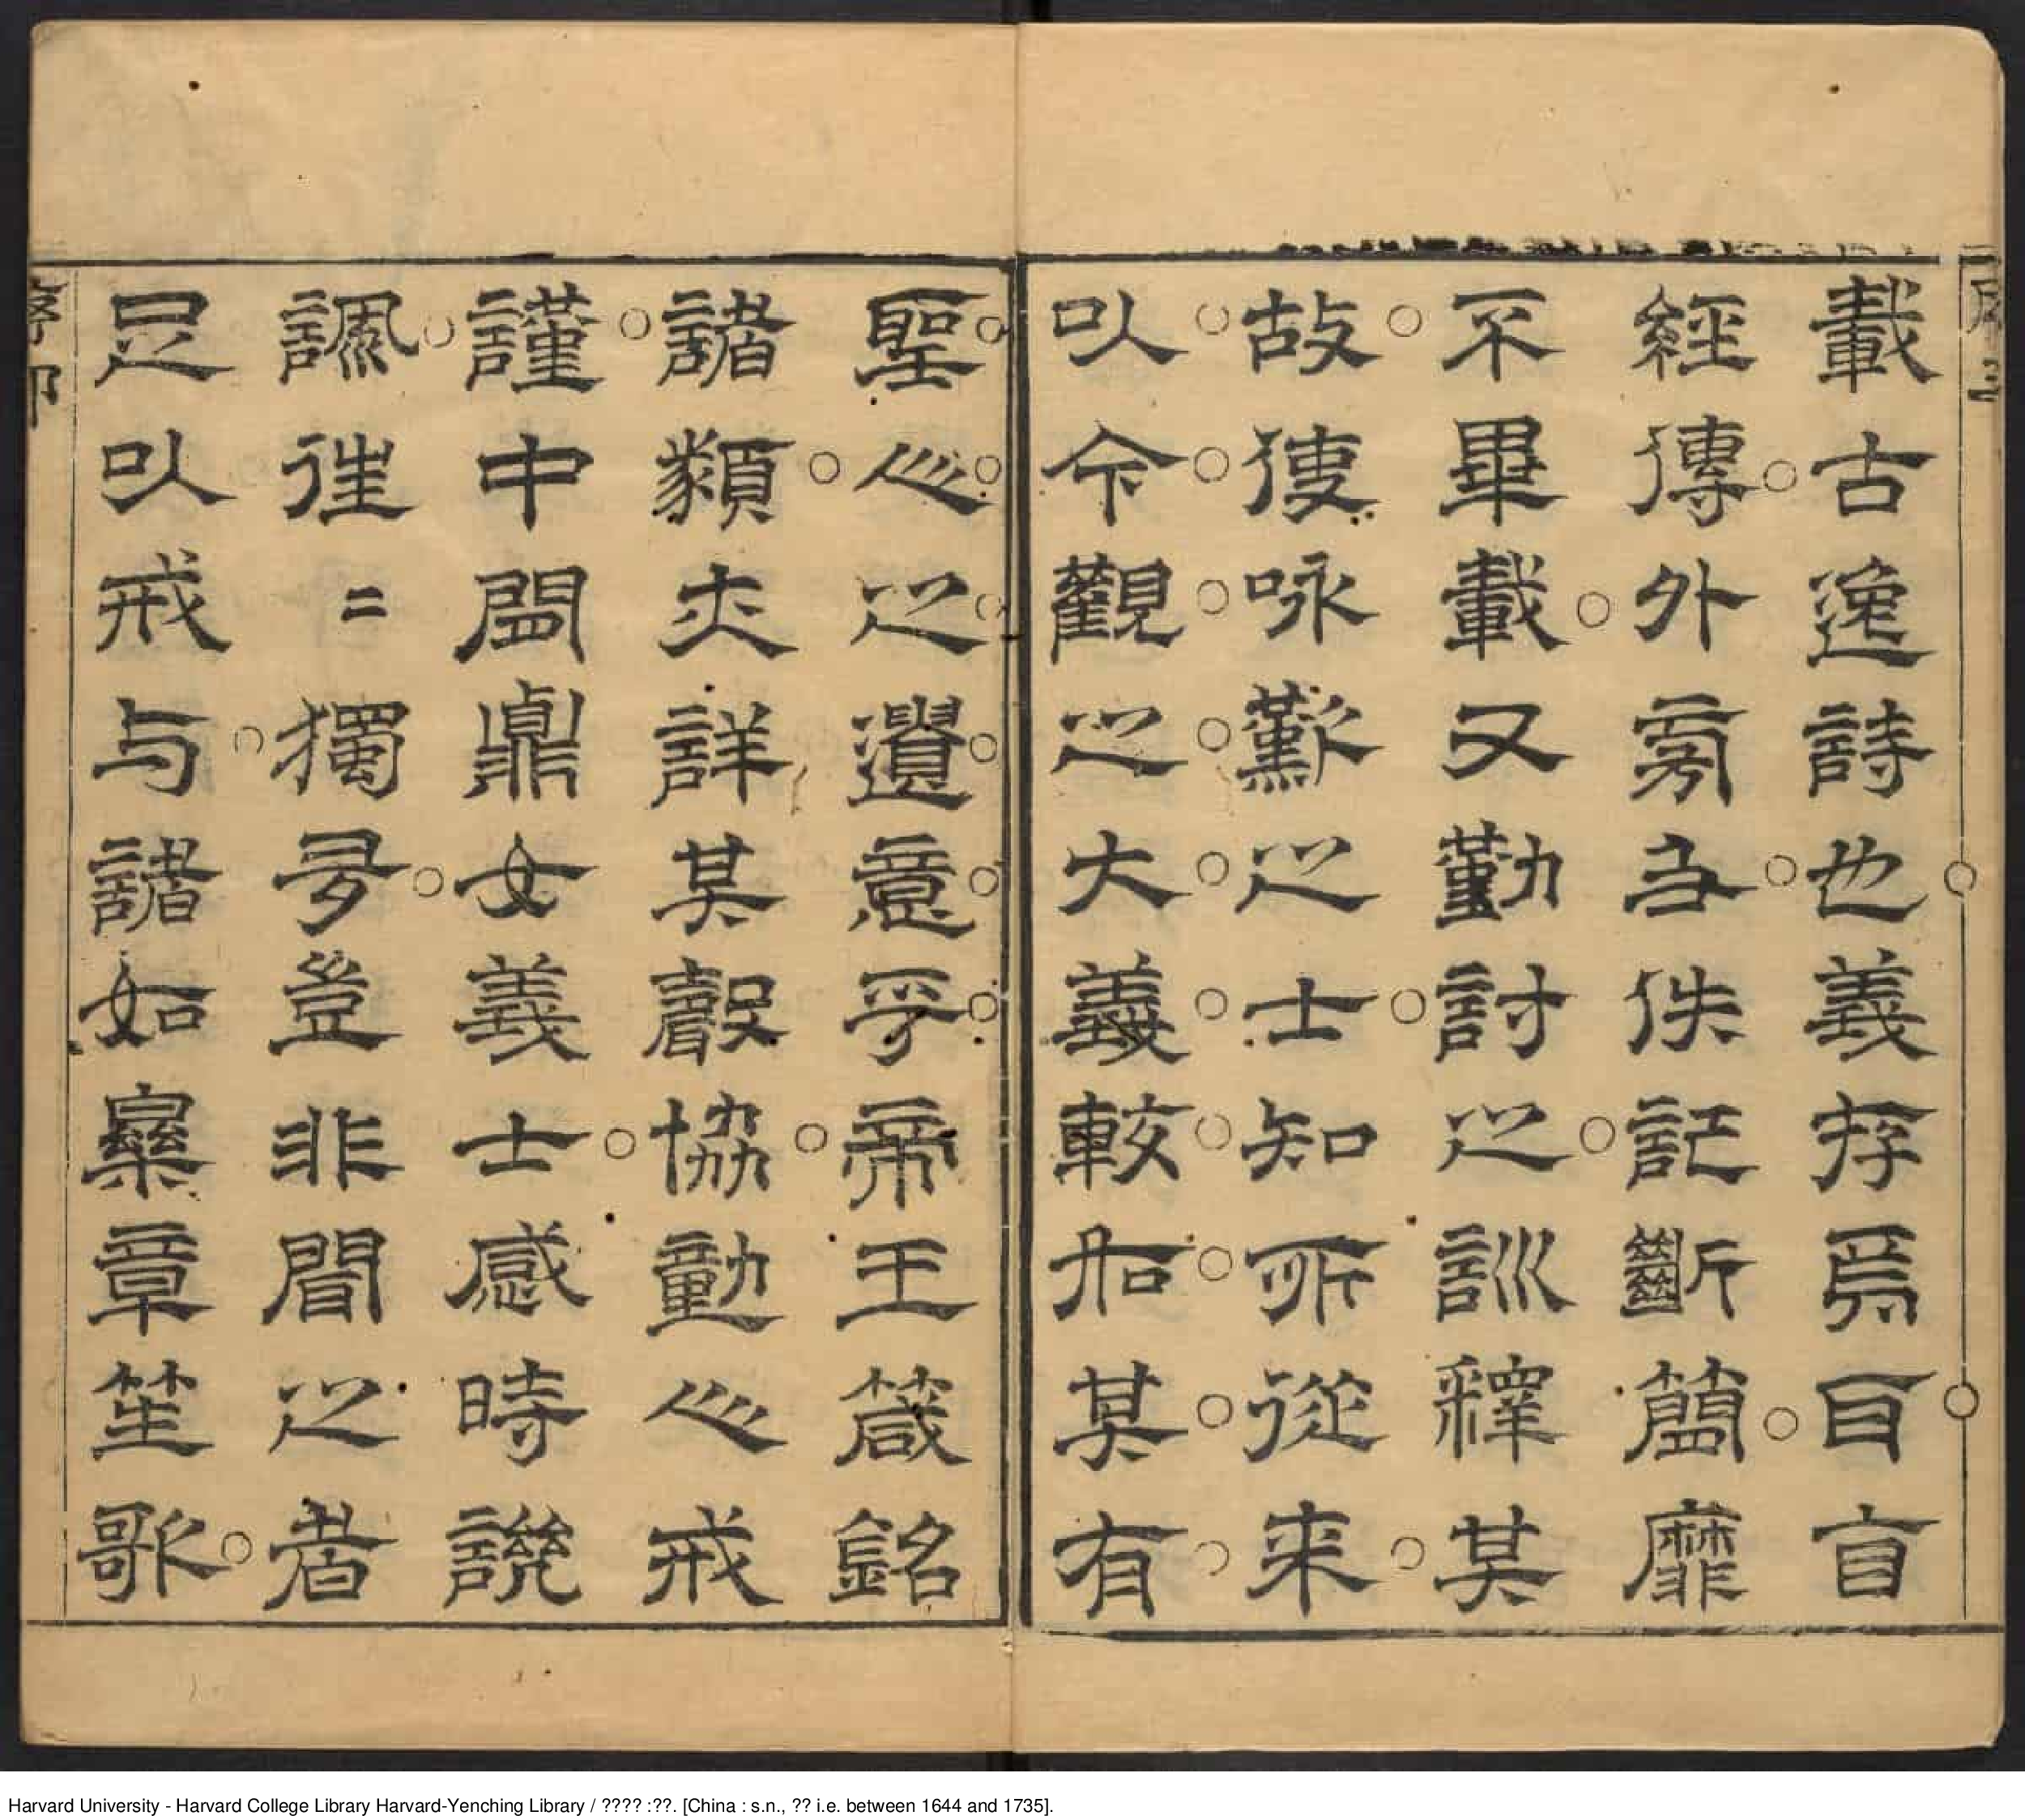 載古逸詩也義存焉耳自
經傳外旁及佚記斷簡靡
不畢載又勤討之訓釋其
故使咏歎之士知所從来
以今觀之大義較其有
聖心之遺意乎帝王箴銘
諸類詳其聲協動心戒
謹中間貞女義士感時譏
諷往〻獨多豈非聞之者
足以戒与諸如樂章笙歌
Harvard University - Harvard College Library Harvard-Yenching Library / ???? :??. [China : s.n., ?? i.e. between 1644 and 1735].